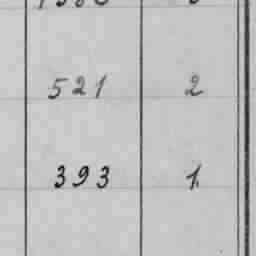 521 2
393 1